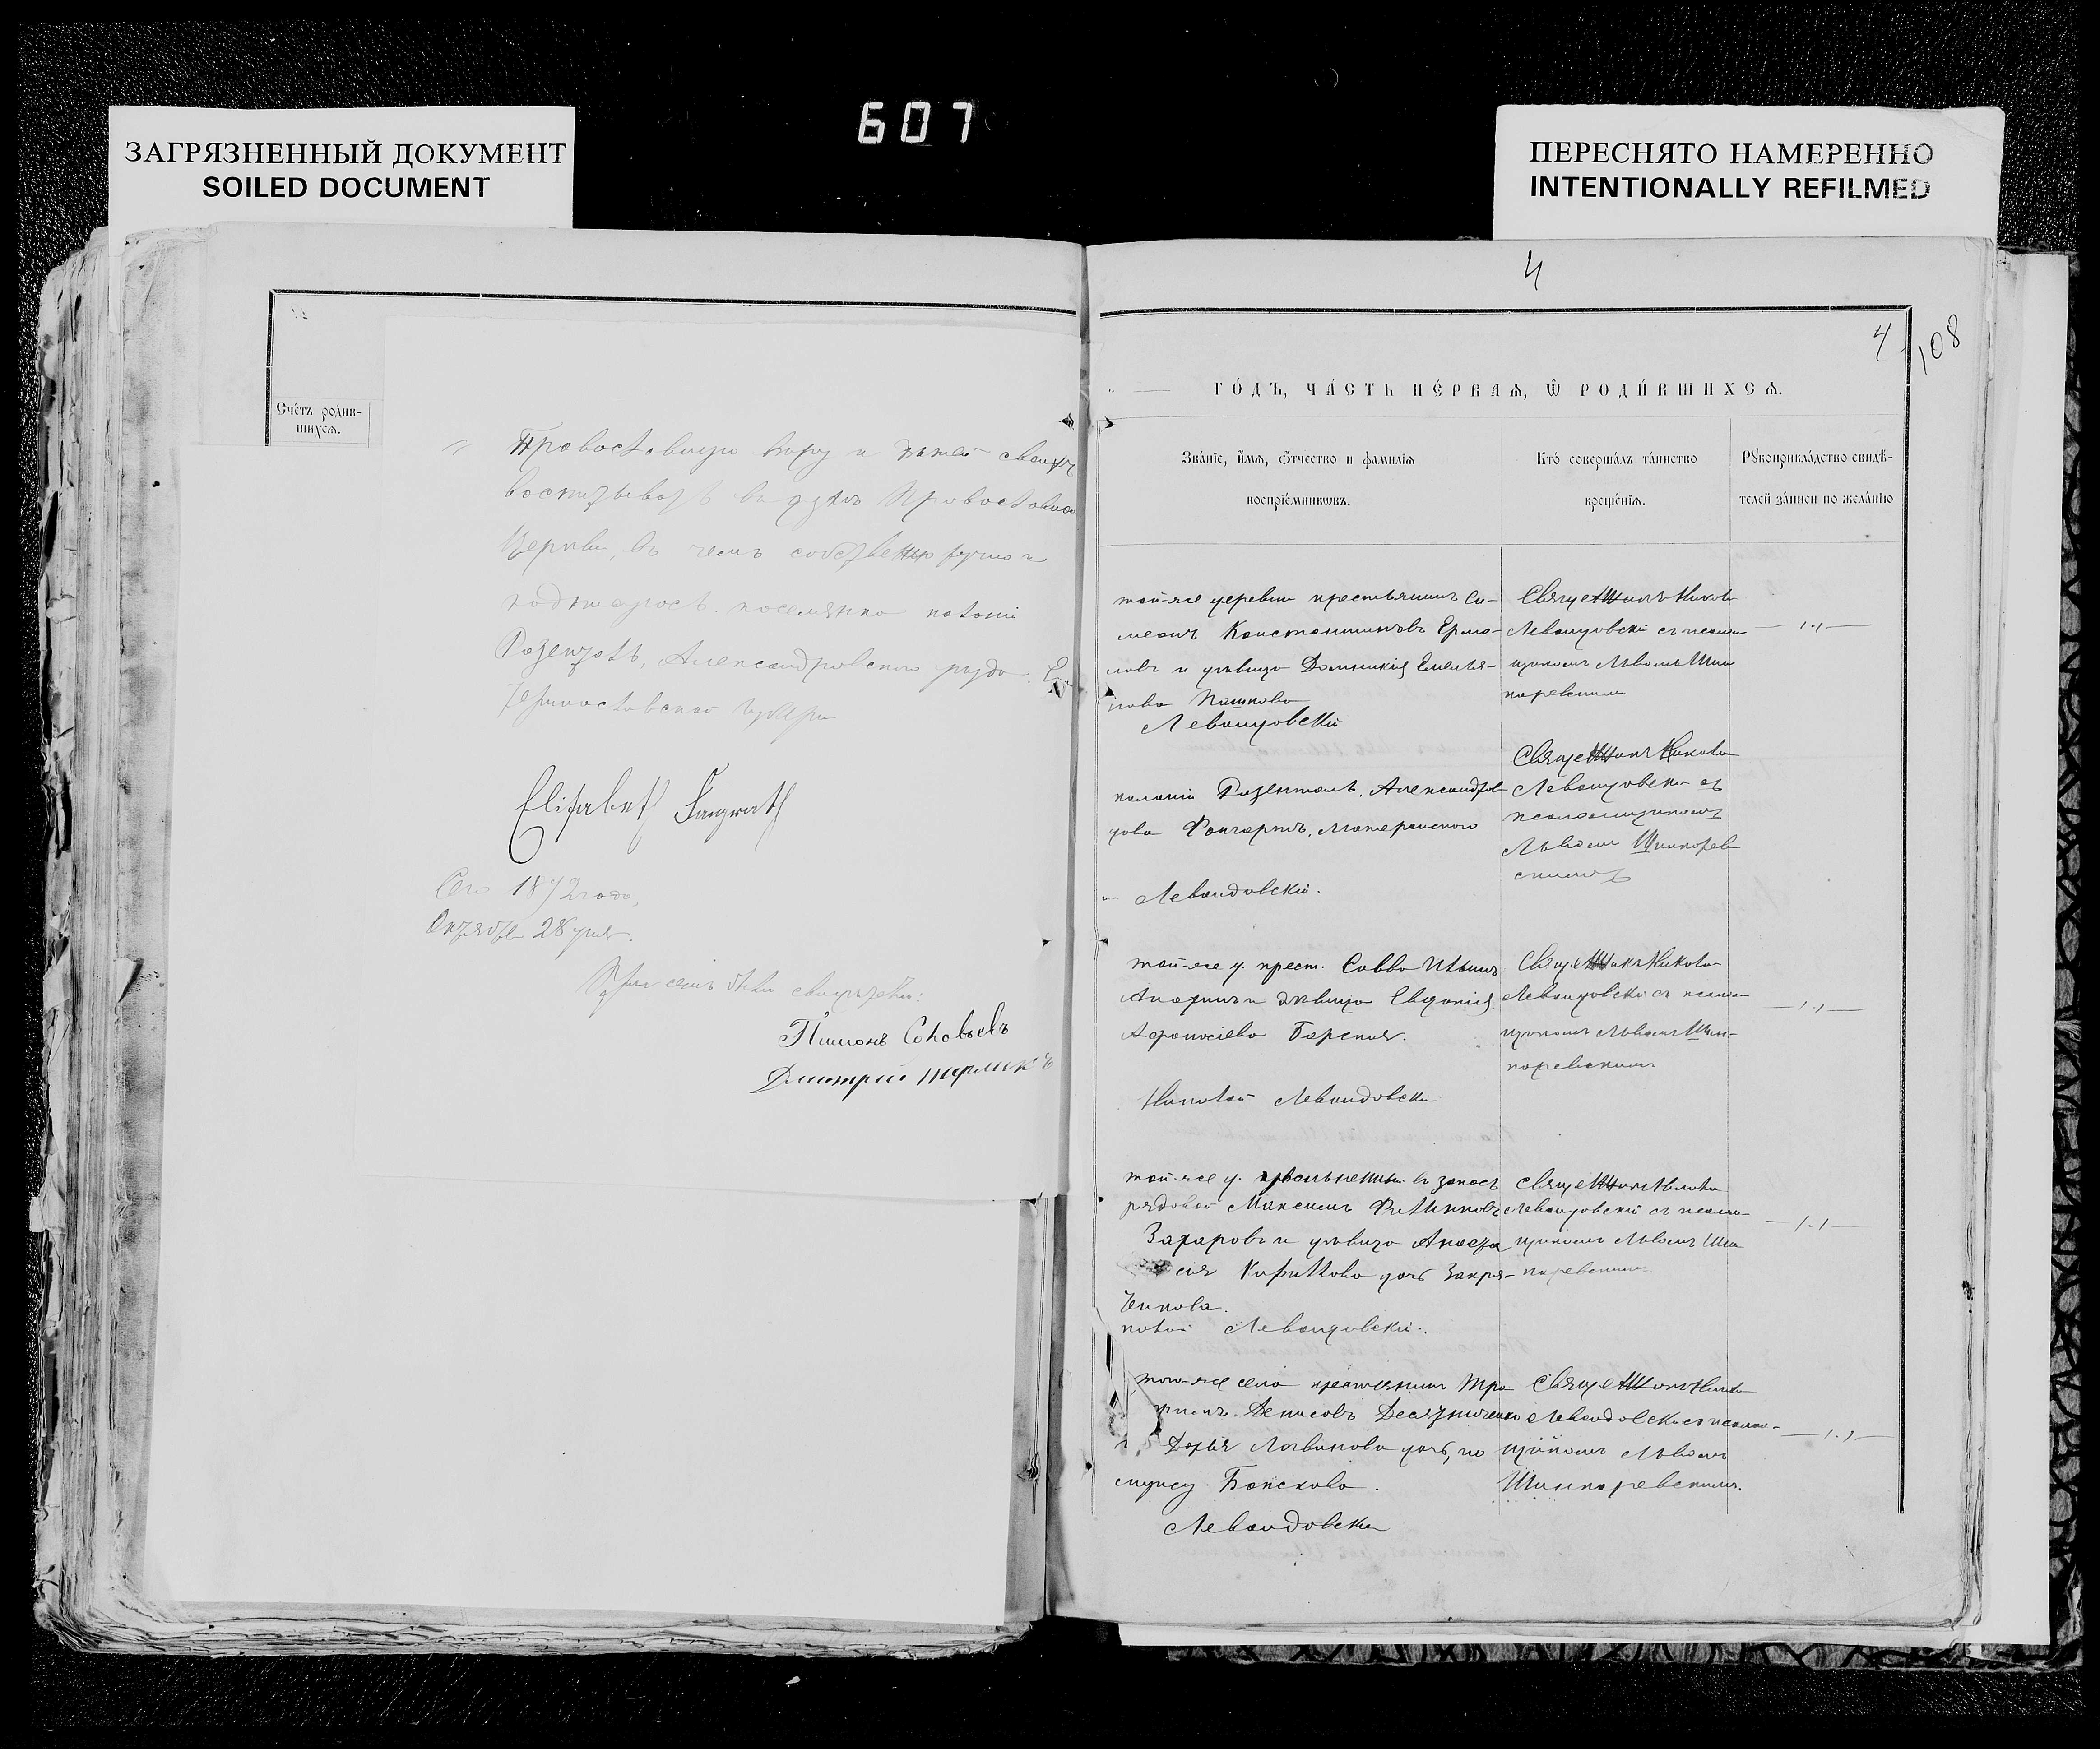 607
ЗАГРЯЗНЕННЫЙ ДОКУМЕНТ
SOILED DOCUMENT
ПЕРЕСНЯТО НАМЕРЕННО
INTENTIONALLY REFILMED
Счетъ родив-
шихсѧ.
Православную вѣру и дѣтей своихъ
воспитывать въ духѣ Православной
Церкви, въ чемъ собственноручно и
подписуюсь. поселянка колоніи
Розенталь, Александровского уѣзда Ека
теринославской губерніи
Elisabeth
Сего 1872 года,
Октября 28 дня.
При семъ были свидѣтели:
Пименъ Соловьевъ
Дмитрій
4
4
108
ГОДЪ, ЧАСТЬ ПЕРВАѦ, Ѿ РОДИВШИХСѦ.
Званіе, имѧ, отчество и фамиліѧ
воспріемникѡвъ.
Кто совершалъ таинство
крещеніѧ.
Рꙋкоприкладство свидѣ-
телей записи по желанію
той-же деревни крестьянинъ Си-
меонъ Константиновъ Ермо-
ловъ и дѣвица Домникія Емелья-
нова Пашкова
Левандовскій
Священникъ Николай
Левандовскій съ псалом
щикомъ Львомъ Шин
каревскимъ
колоніи Розенталь, Александров
Левандовскій.
Священникъ Николай
Левандовскій съ
псаломщикомъ
Львомъ Шинкарев
скимъ
той-же д. крест. Савва Ильинъ
и дѣвица Евдокія
Афанасіева
Николай Левандовскій
Священникъ Николай
Левандовскій съ псалом-
щикомъ Львомъ Шин-
каревскимъ
той-же д. уволенный въ запасъ
рядовой Максимъ Филипповъ
Захаровъ и дѣвица Анаста
сія Кириллова дочь Закря-
чикова.
Николай Левандовскій.
Священникъ Николай
Левандовскій съ псалом-
щикомъ Львомъ Шин
каревскимъ.
того-же села крестьянинъ Тро
фимъ Денисовъ Десятниченко
и Дарія Логвинова дочь, по
мужу
Левандовскій
Священникъ Николай
Левандовскій съ псалом-
щикомъ Львомъ
Шинкаревскимъ.